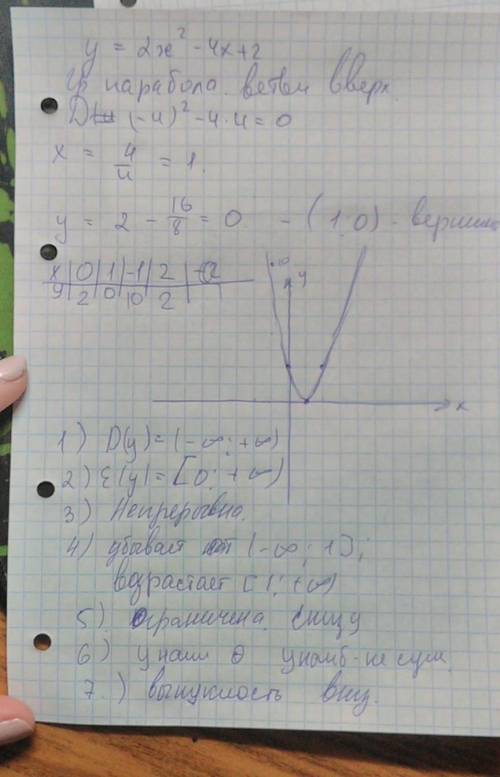 y = 2x² - 4x + 2
Гр парабола. ветви вверх.
D (-4)² - 4·4 = 0
x = 4/4 = 1.
y = 2 - 16/8 = 0 - (1;0) - вершина
x | 0 | 1 | -1 | 2 |
y | 2 | 0 | 10 | 2 |
10
y
x
1) D(y) = (-∞; +∞)
2) E(y) = [0; +∞)
3) Непрерывна.
4) убывает (-∞; 1];
возрастает [1; +∞)
5) Ограничена снизу
6) y наим 0 y наиб - не сущ.
7.) выпуклость вниз.